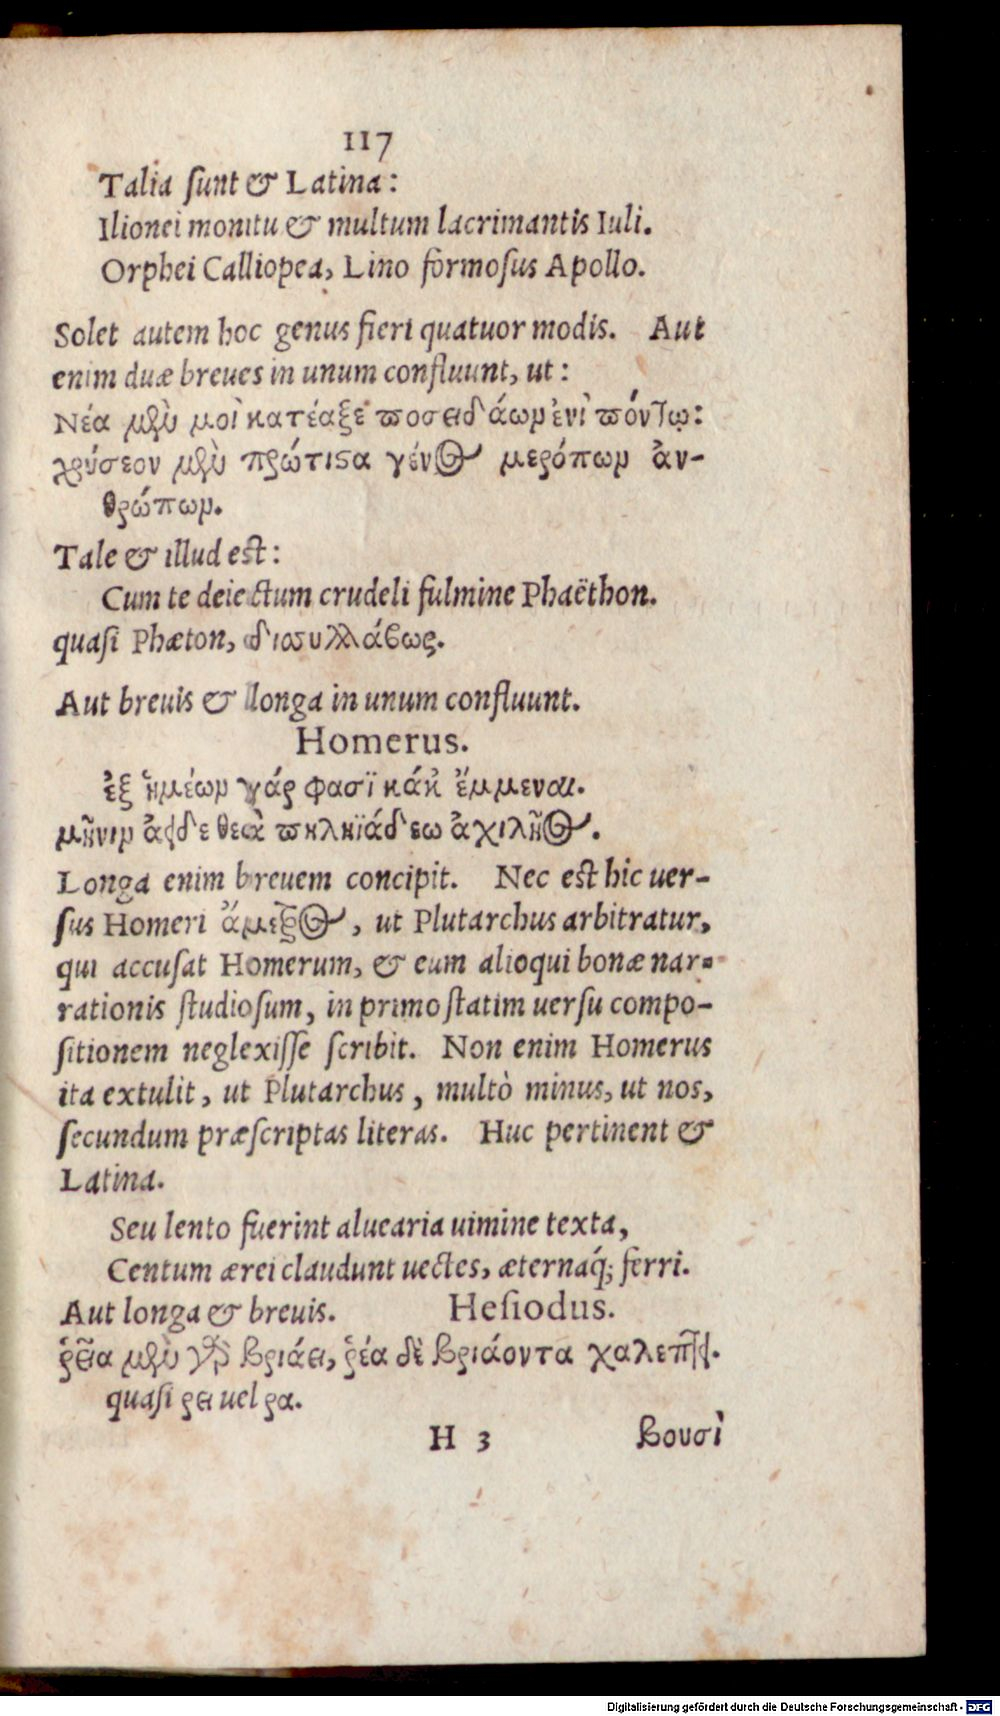 117
Talia ſunt & Latina:
Ilionei monitu & multum lacrimantis Iuli.
Orphei Calliopea, Lino formoſus Apollo.
Solet autem hoc genus fieri quatuor modis. Aut
enim duæ breues in unum confluunt, ut:
Νέα μὲν μοὶ κατέαξε ποσειδάων ἐνὶ πόντῳ:
χρύσεον μὲν πρώτιϛα γένος μερόπων ἀν-
θρώπων.
Tale & illud est:
Cum te deiectum crudeli fulmine Phaëthon.
quaſi Phæton, διουλλάβως.
Aut breuis & longa in unum confluunt.
Homerus.
ἐξ ἡμέων γάρ φασὶ κάκ' ἔμμεναι.
μῆνιν ἄειδε θεὰ πηληϊάδεω ἀχιλῆος.
Longa enim breuem concipit. Nec est hic uer-
ſus Homeri ἄμετρος, ut Plutarchus arbitratur,
qui accuſat Homerum, & eum alioqui bonæ nar-
rationis ſtudioſum, in primo ſtatim uerſu compo-
ſitionem neglexiſſe ſcribit. Non enim Homerus
ita extulit, ut Plutarchus, multò minus, ut nos,
ſecundum præſcriptas literas. Huc pertinent &
Latina.
Seu lento fuerint aluearia uimine texta,
Centum ærei claudunt uectes, æternaq́; ferri.
Aut longa & breuis. Heſiodus.
ῥεῖα μὲν γὰρ βριάει, ῥέα δὲ βριάοντα χαλεπτει.
quaſi ρει uel ρα.
H 3 βουσὶ
Digitalisierung gefördert durch die Deutsche Forschungsgemeinschaft - DFG